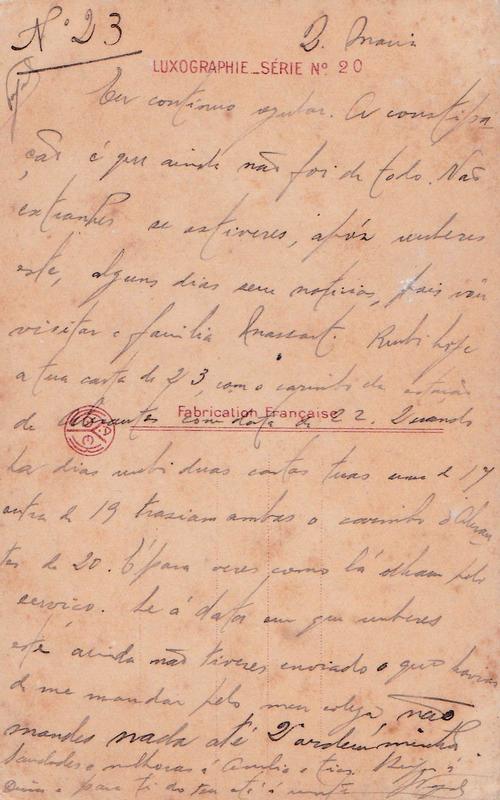 Nº 23
D. Maria
LUXOGRAPHIE_SÉRIE Nº 20
Eu continuo . A constipa
ção é que ainda não foi de todo. Não
extranhes se estiveres, após receberes
este, alguns dias sem noticias, pois vou
visitar a familia . Recebi hoje
a tua carta de 23, com o carimbo da estação
de Abrantes com data de 22. Quando
Fabrication Française
ha dias recebi duas cartas tuas uma de 17
outra de 19 traziam ambas o carimbo d'Abran
tes de 20. É para veres como lá olham pelo
serviço. Se á data em que receberes
este ainda não tiveres enviado o que havias
de me mandar pelo meu colega, não
mandes nada até 2ª ordem minha
Saudades e melhoras á e tios. Beija a
e para ti do teu até á morte